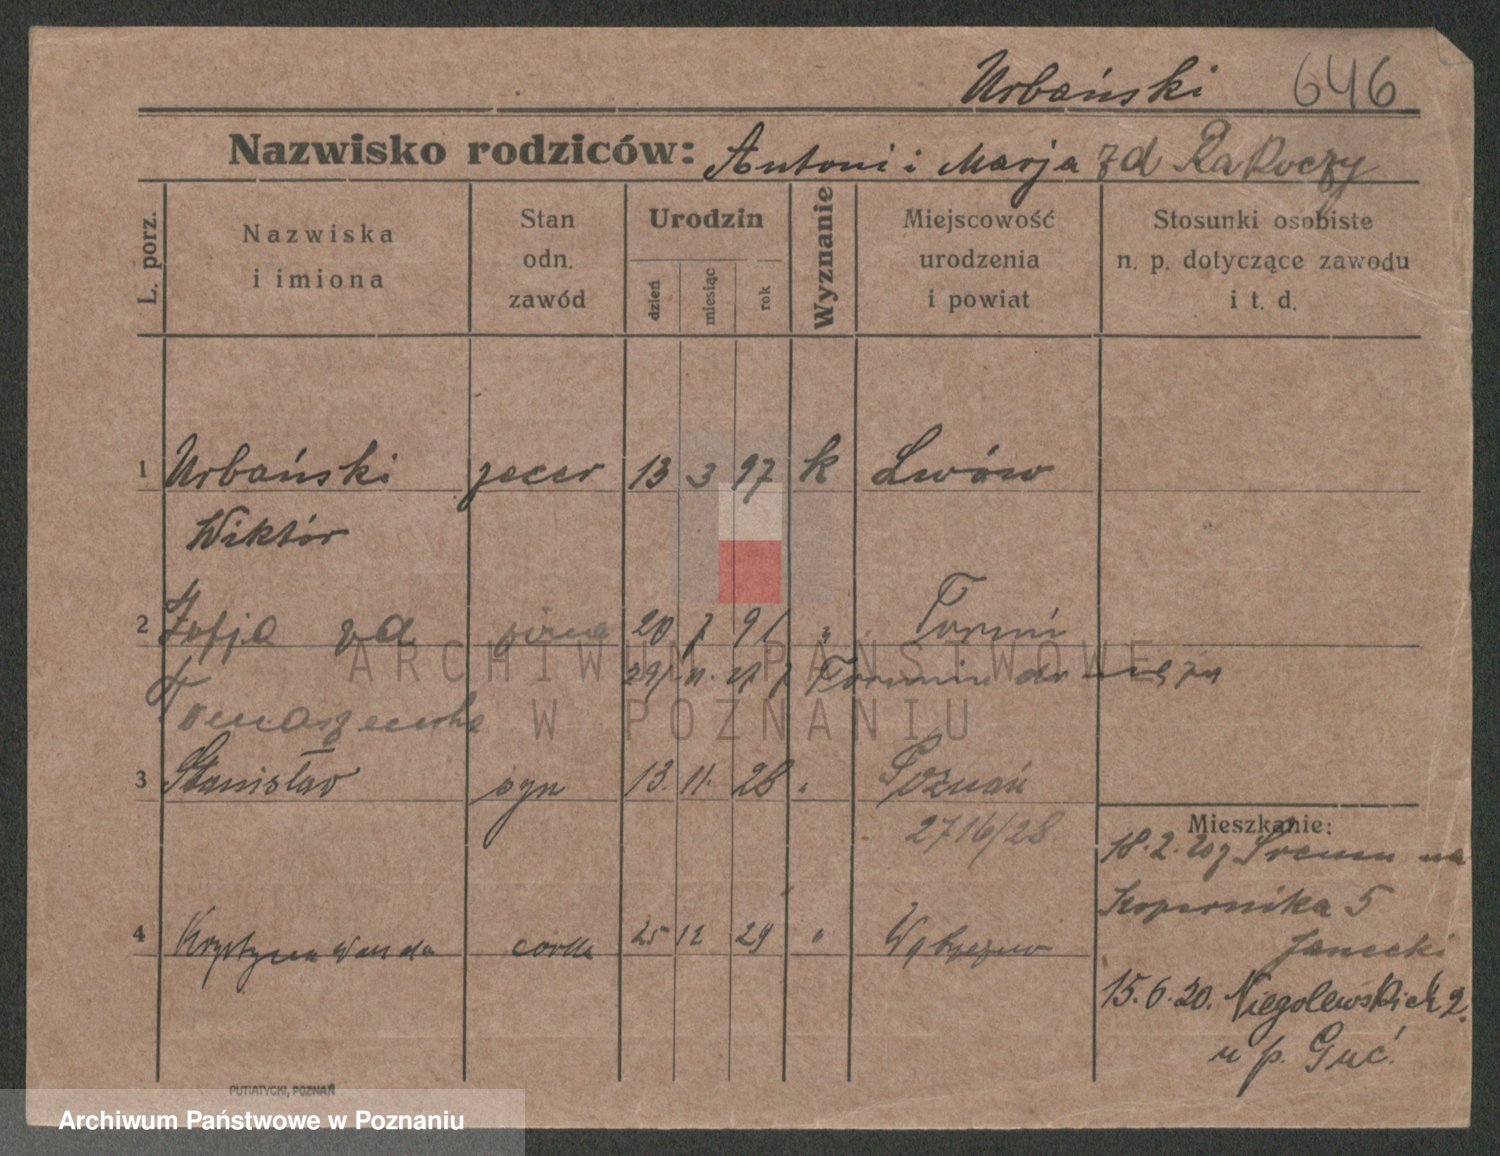 Urbański 646
Nazwisko rodziców: Antoni i Marja zd Rakoczy
L. porz.
Nazwiska
i imiona
Stan
odn.
zawód
Urodzin
dzień
miesiąc
rok
Wyznanie
Miejscowość
urodzenia
i powiat
Stosunki osobiste
n. p. dotyczące zawodu
i t. d.
1 Urbański zecer 13 3 97 k Lwów
Wiktór
2 Zofja zd żona 20 7 91 " Toruń
29/ 11. 21 z Torunia do męża
Tomaszewska
3 Stanisław syn 13. 11. 28 " Poznań
2716/28
4 Krystyna Wanda córka 25 12 29 " Wąbrzeźno
Mieszkanie:
18.2. Śremu na
Kopernika 5
Janecki
15.6.30. Niegolewskich 2.
u p. Guć.
PUTIATYCKI, POZNAŃ
ARCHIWUM PAŃSTWOWE
W POZNANIU
Archiwum Państwowe w Poznaniu